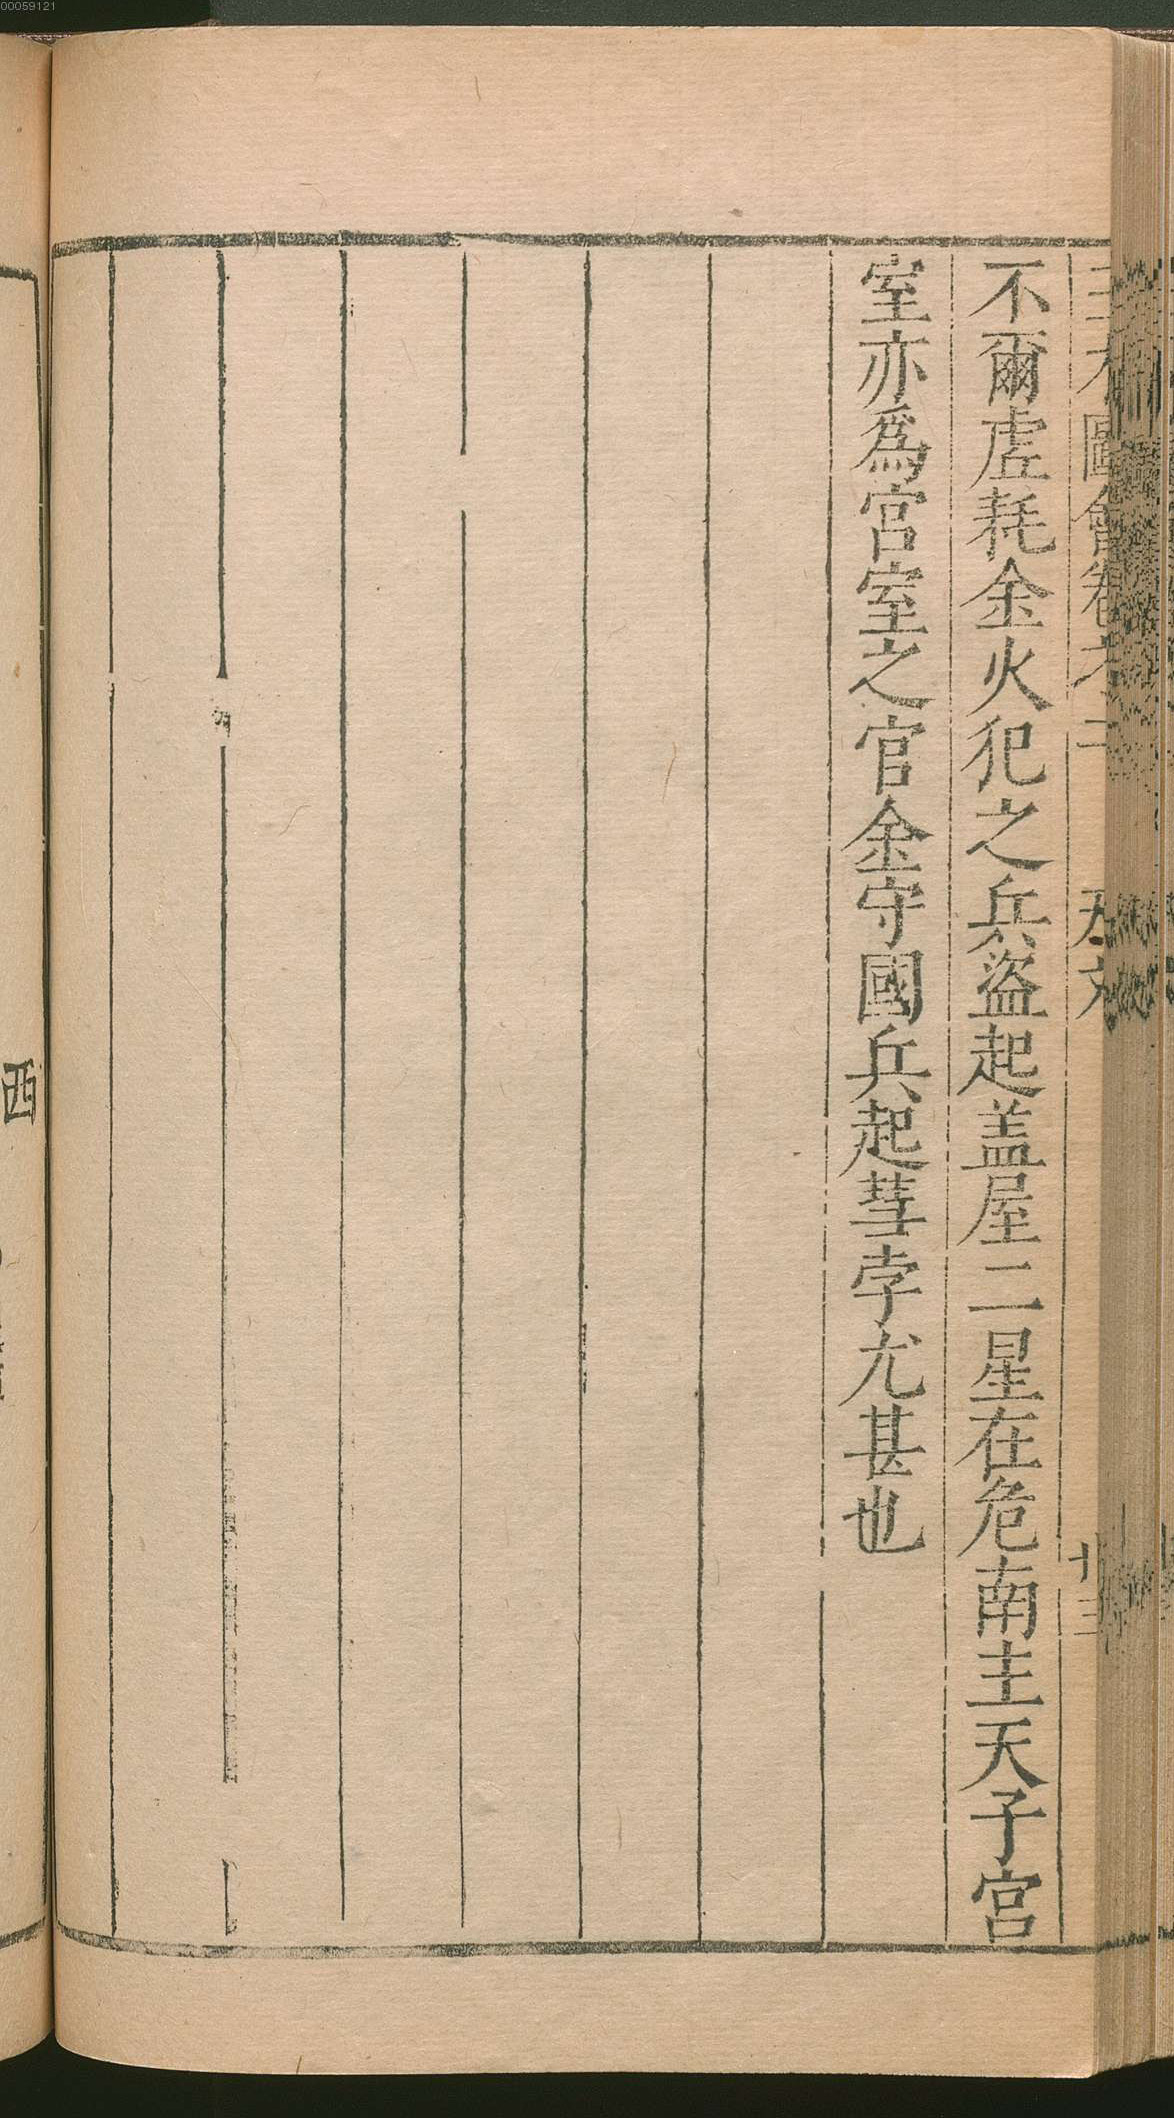 00059121
圖會卷之二 天文 廿三
不爾虛耗金火犯之兵盜起盖屋二星在危南主天子宮
室亦爲宮室之官金守國兵起彗孛尤甚也
西